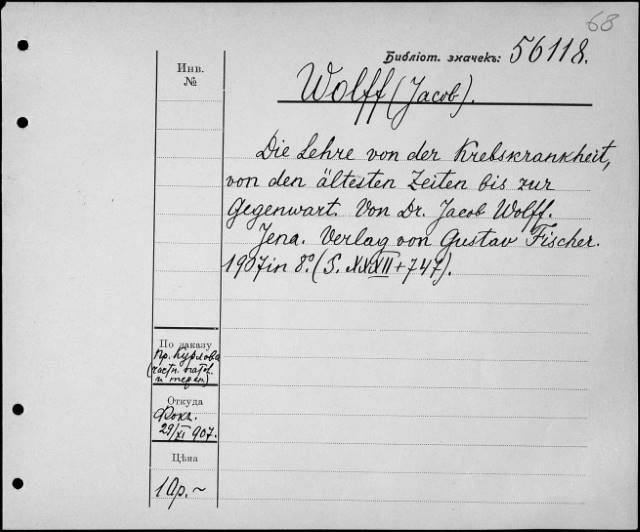 68
Библіот. значекъ: 56118.
Инв.
№
Wolff (Jacob).
Die Lehre von der Krebskrankheit,
von den ältesten Zeiten bis zur
Gegenwart. Von Dr. Jacob Wolff.
Jena. Verlag von Gustav Fischer.
1907 in 8º. (S. XXXII + 747).
По заказу
Пр. Курлова
(частн. патол.
и терап.)
Откуда
Фокк.
29/XI 907.
Цѣна
р. ~